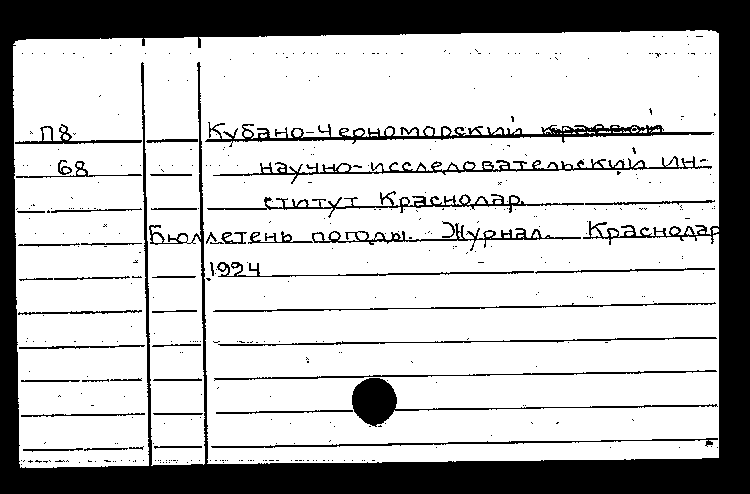 П8 Кубано-Черноморский краевой
68 научно-исследовательский ин-
ститут Краснодар.
Бюллетень погоды. Журнал. Краснодар
1924